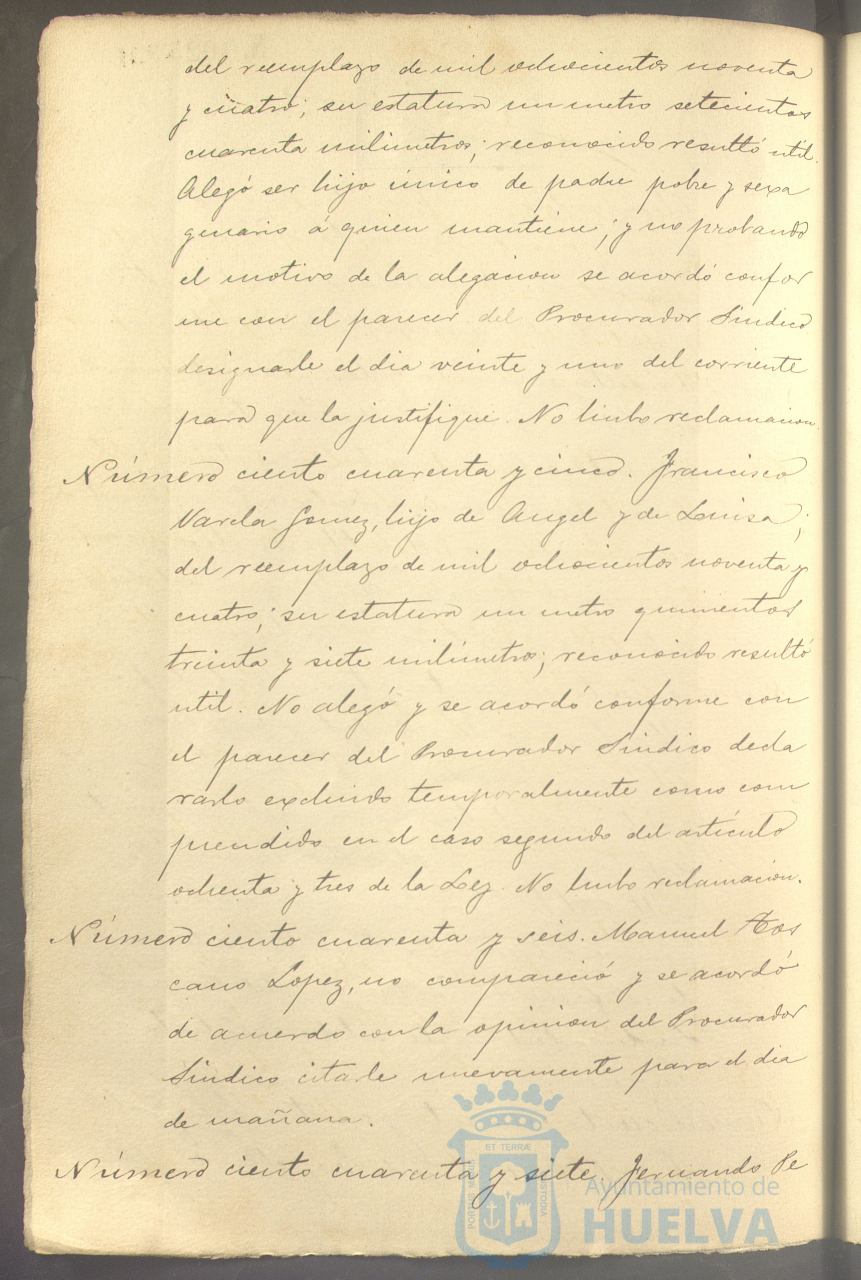 del reemplazo de mil ochocientos noventa
y cuatro; su estatura un metro setecientos
cuarenta milimetros; reconocido resultó util.
Alegó ser hijo único de padre pobre y sexa
genario á quien mantiene; y no probando
el motivo de la alegacion se acordó confor
me con el parecer del Procurador Sindico
designarle el dia veinte y uno del corriente
para que la justifique. No hubo reclamacion.
Número ciento cuarenta y cinco. Francisco
Varela Gomez, hijo de Angel y de Luisa;
del reemplazo de mil ochocientos noventa y
cuatro; su estatura un metro quinientos
treinta y siete milímetros; reconocido resultó
util. No alegó y se acordó conforme con
el parecer del Procurador Sindico decla
rarlo excluido temporalmente como com
prendido en el caso segundo del artículo
ochenta y tres de la Ley. No hubo reclamacion.
Número ciento cuarenta y seis. Manuel Tos
cano Lopez, no compareció y se acordó
de acuerdo con la opinion del Procurador
Sindico citarle nuevamente para el dia
de mañana.
Número ciento cuarenta y siete, Fernando Pe
ET TERRÆ
PORTUS MARIS
CUSTODIA
Ayuntamiento de
HUELVA